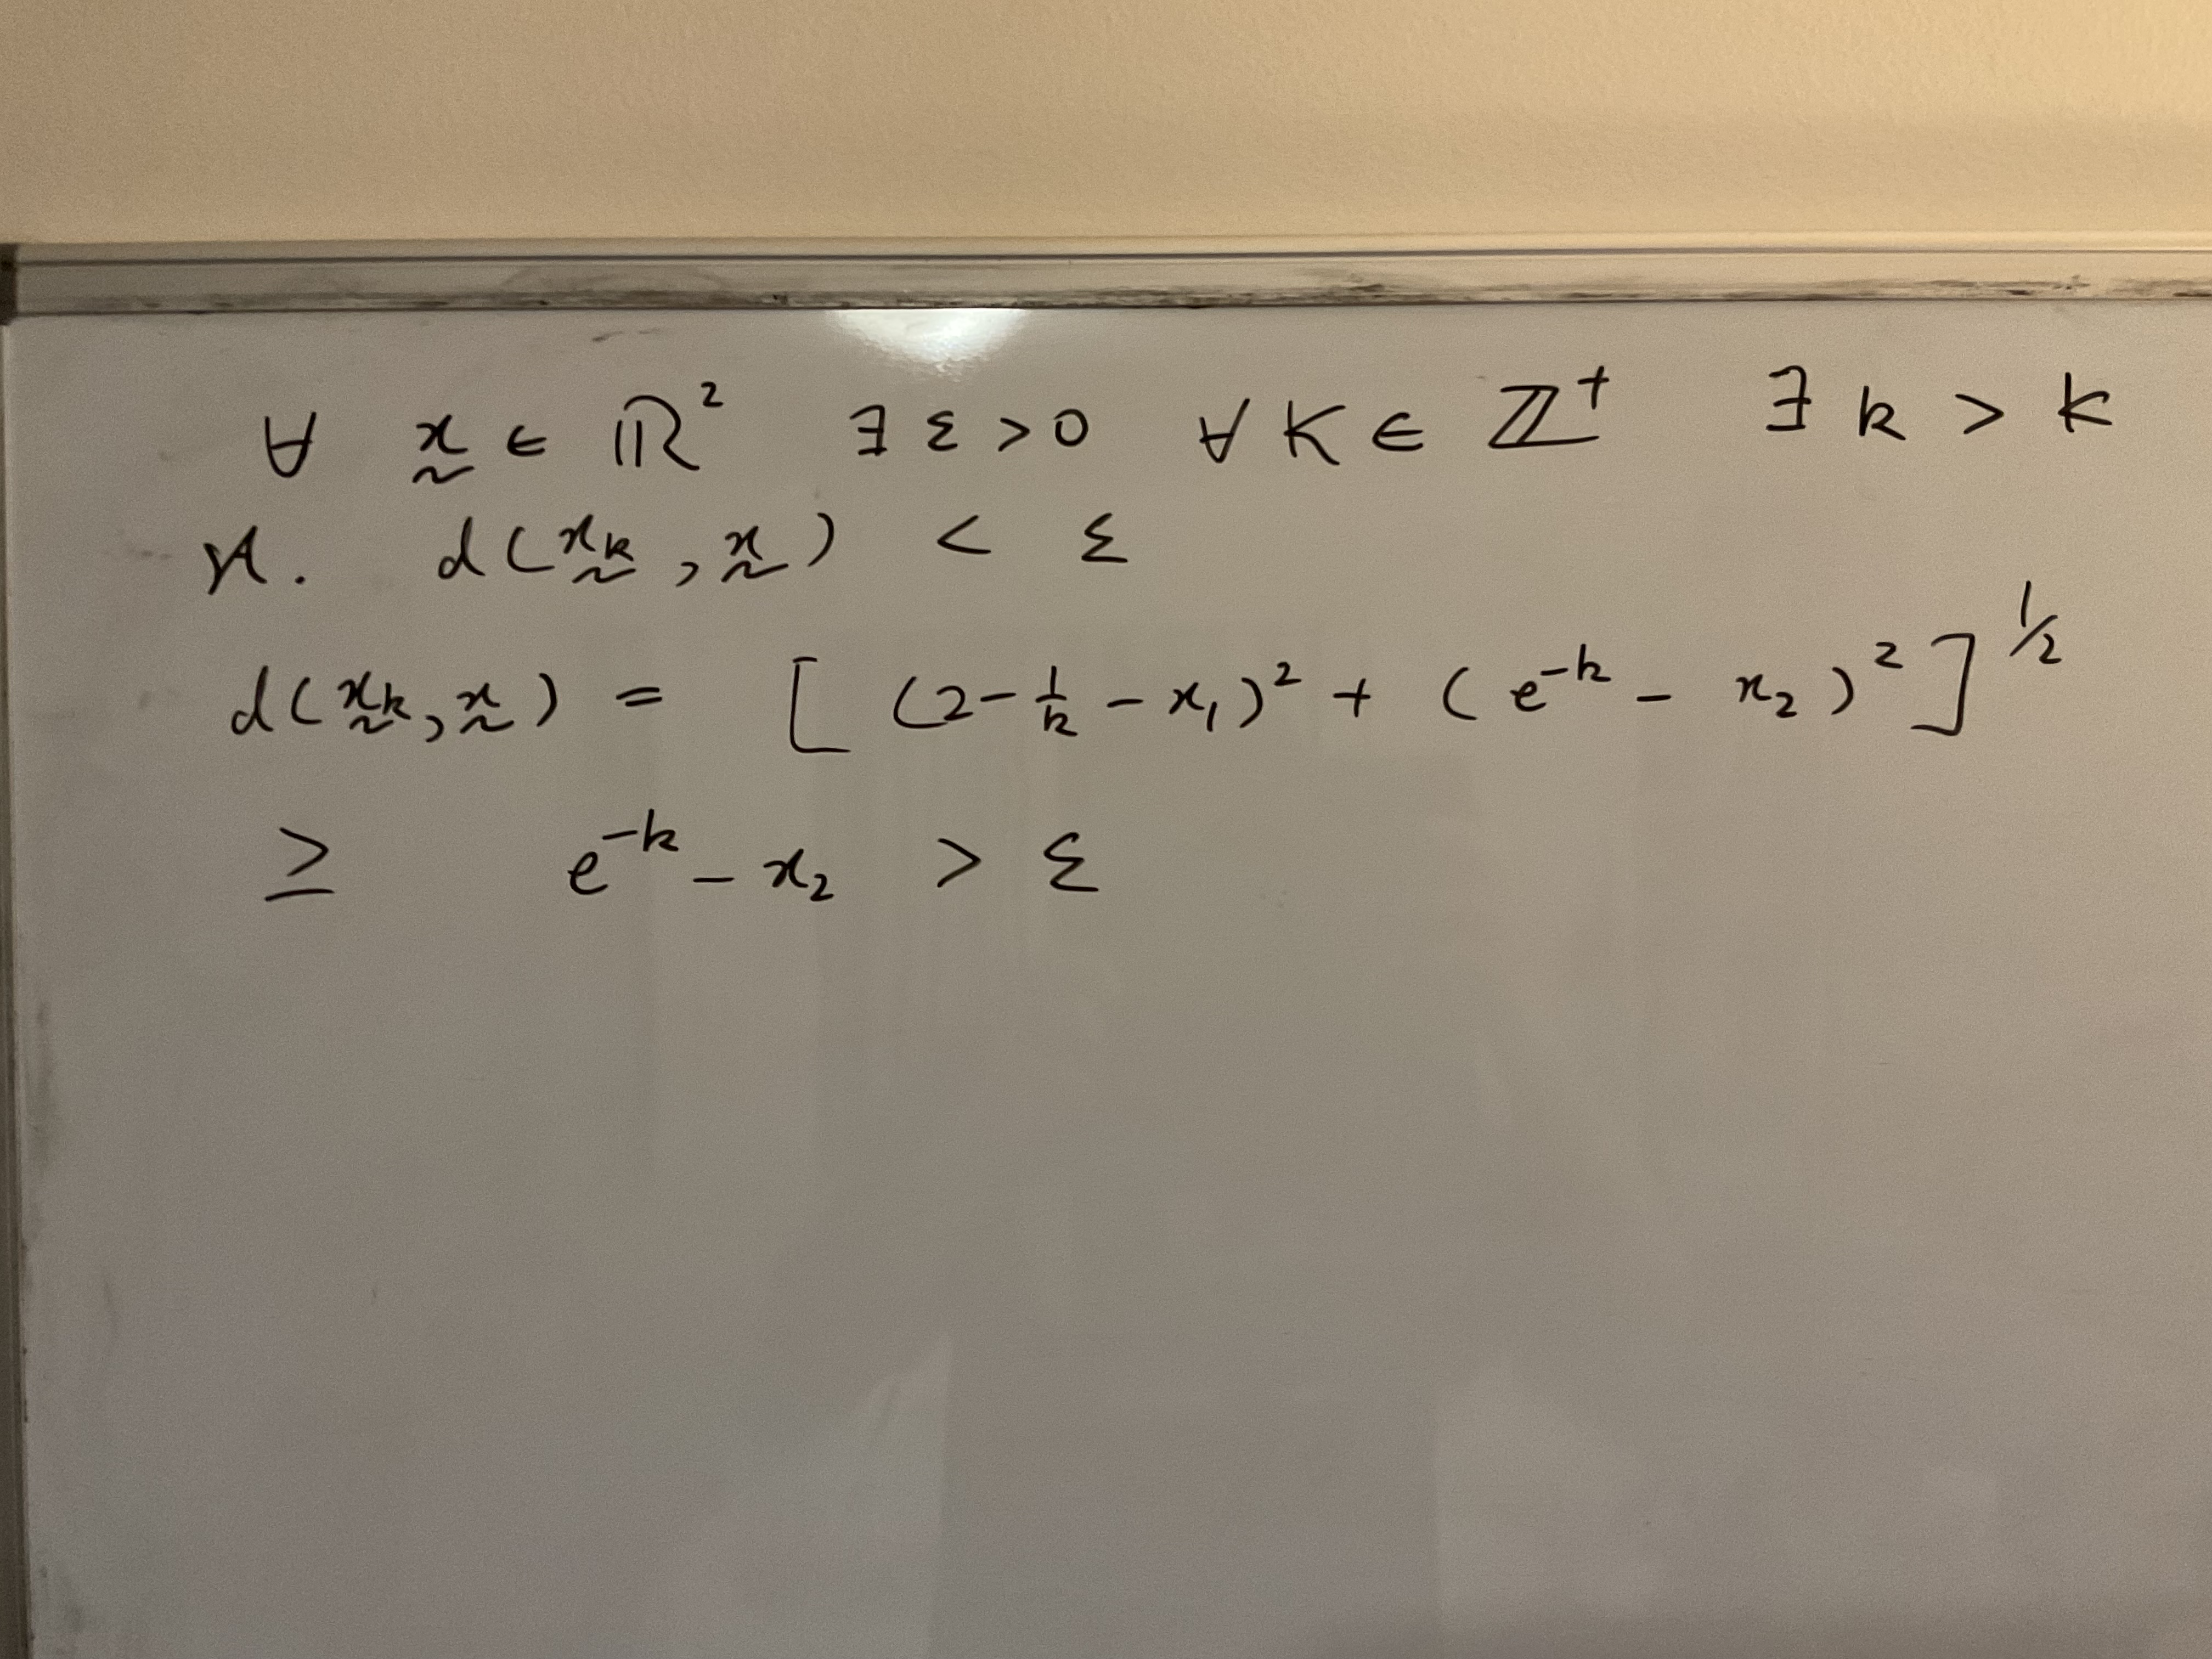 ∀ x̰ ∈ ℝ² ∃ ε > 0 ∀ K ∈ ℤ⁺ ∃ k > K
st. d(x̰ₖ, x̰) < ε
d(x̰ₖ, x̰) = [ (2 - 1/k - x₁)² + (e⁻ᵏ - x₂)² ]^1/2
≥ e⁻ᵏ - x₂ > ε